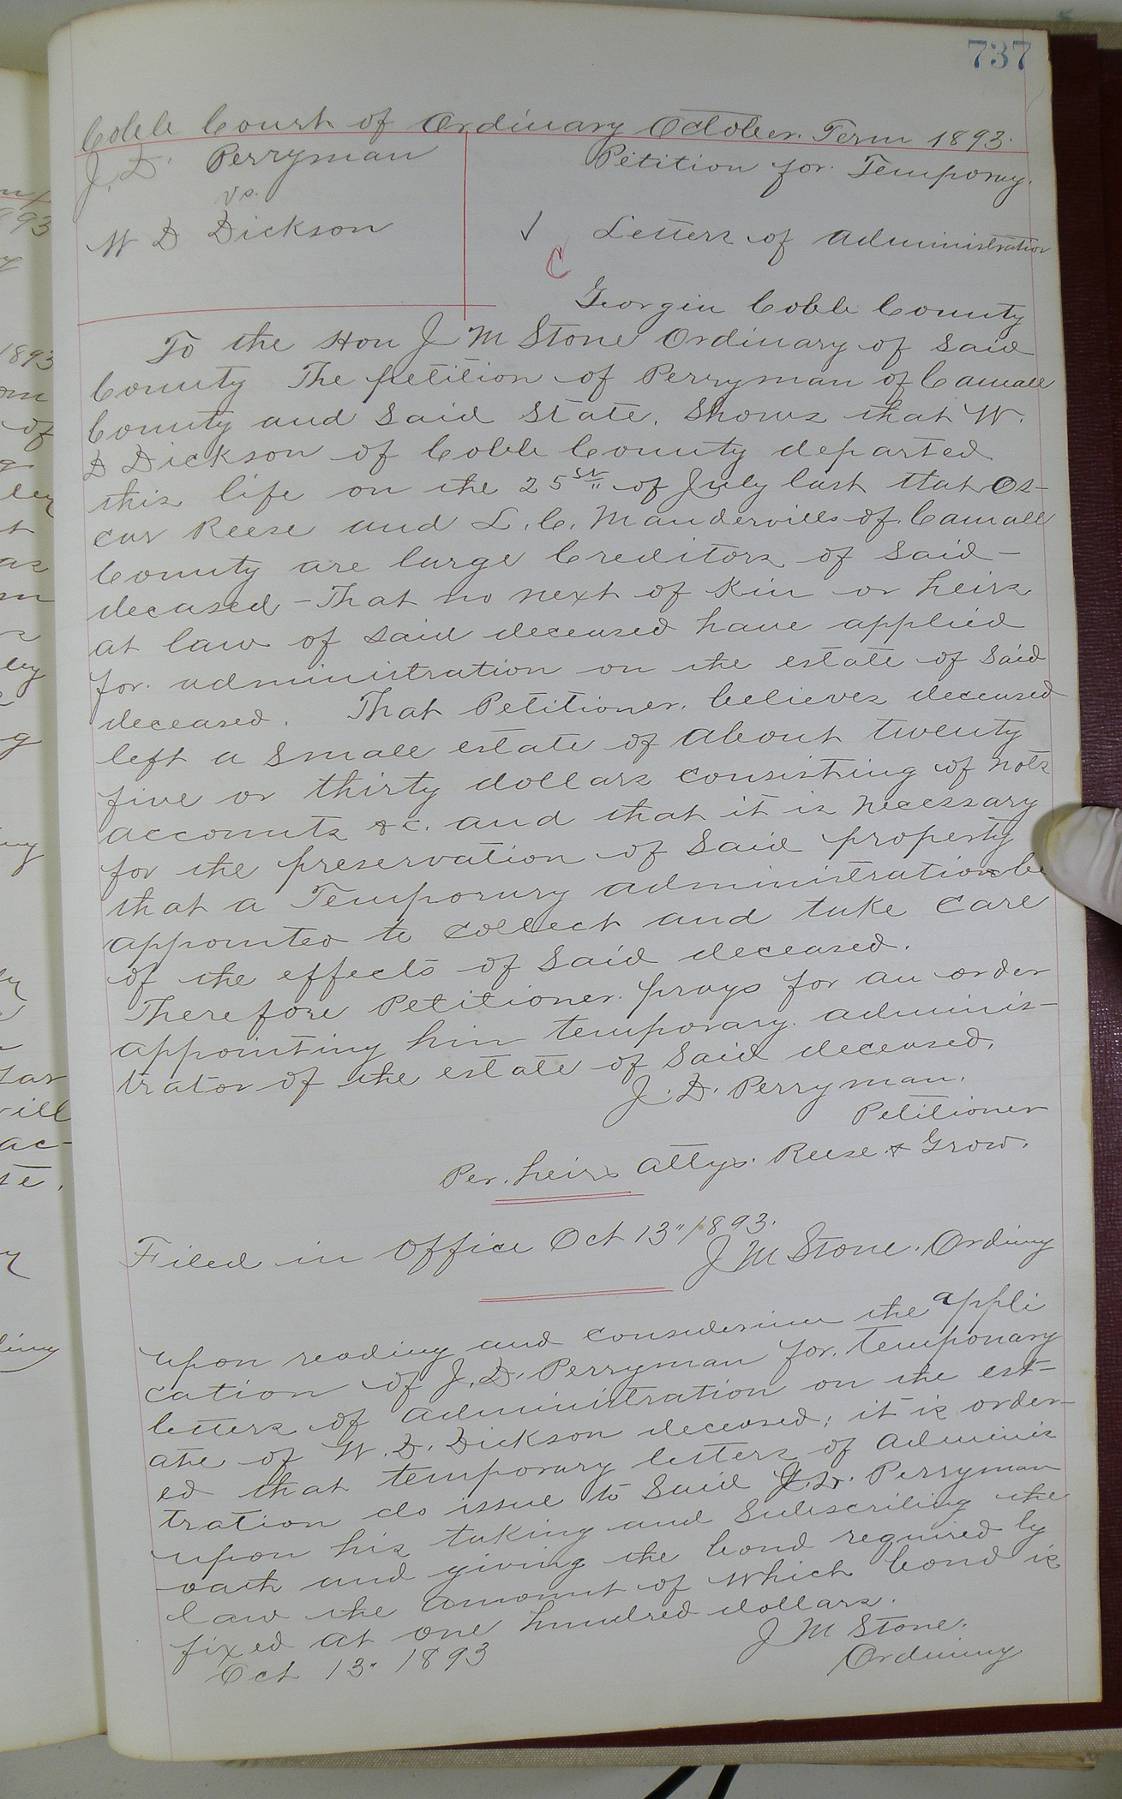 737
Cobb Court of Ordinary October Term 1893.
J. D. Perryman
vs.
W D Dickson
Petition for Temporay
Letters of administration
C
Georgia Cobb County
To the Hon J M Stone Ordinary of Said
County The petition of Perryman of Carroll
County and Said State. Shows that W.
D Dickson of Cobb County departed
this life on the 25st of July last that Os-
car Reese and L. C. Mandervills of Carroll
County are large Creditors of Said -
decased - That no next of Kin or heirs
at law of Said deceased have applied
for administration on the estate of Said
deceased. That Petitioner. believes deceased
left a Small estate of about twenty
five or thirty dollars consisting of nots
accounts &c. and that it is necessary
for the preservation of Said property
that a Temporary administration be
appointed to Collect and take Care
of the effects of Said deceased.
Therefore Petitioner prays for an order
appointing him temporary adminis-
trator of the estate of Said deceased.
J. D. Perryman.
Petitioner
Per. heirs attys. Reese & Grow.
Filed in Office Oct 13" 1893.
J M Stone. Ordinay
Upon reading and considerinn the appli
cation of J. D. Perryman for. temponary
letters of administration on the est-
ate of W. D. Dickson deceased; it is order-
ed that temporary letters of adminis
tration do issue to Said J. D. Perryman
upon his taking and Subscribing the
oath and giving the bond required by
law the amount of which bond is
fixed at one hundred dollars.
Oct 13" 1893
J M Stone.
Ordinary